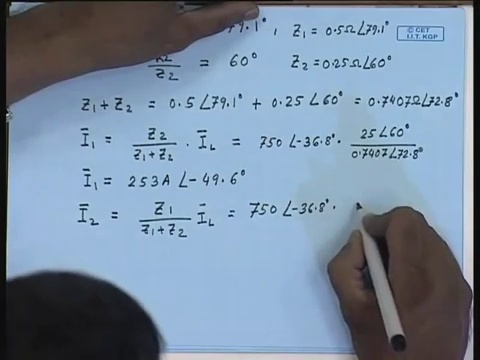 79.1°, Z1 = 0.5Ω∠79.1°
© CET
I.I.T. KGP
/Z2 = 60° Z2 = 0.25Ω∠60°
Z1 + Z2 = 0.5∠79.1° + 0.25∠60° = 0.7407Ω∠72.8°
Ī1 = Z2/(Z1+Z2) · ĪL = 750∠-36.8° · 25∠60°/0.7407∠72.8°
Ī1 = 253A∠-49.6°
Ī2 = Z1/(Z1+Z2) ĪL = 750∠-36.8° ·